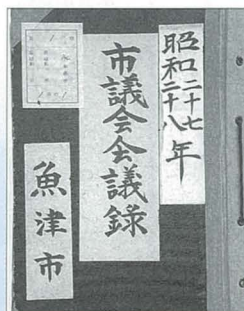 昭和二十七
二十八年
市議会会議録
魚津市